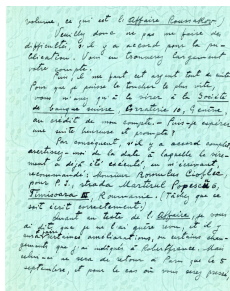 volume, ce qui est l'Affaire Roussakov.
Veuillez donc ne pas me faire des
difficultés, s'il y a accord pour la pu-
blication. Vous en trouverez largement
votre compte.
Puis, il me faut cet argent tout de suite.
Pour que je puisse le toucher le plus vite,
vous n'avez qu'à le virer à la Société
de banque suisse, Corraterie 10, Genève
au crédit de mon compte. Puis-je espérer
une suite heureuse et prompte?
Par conséquent, s'il y a accord complet,
avertissez-moi de la date à laquelle le vire-
ment a déjà été exécuté, en m'écrivant,
recommandé: Monsieur Romulus Cioflec
pour P. I., strada Martirul Popescu 6,
Timisoara III, Roumanie. (Tâchez que ce
soit écrit correctement)
Quant au texte de l'Affaire, je vous
ai dit que je n'ai guère revu, et il y
aurait améliorations, ou certains chan-
gements que j'ai indiqués à Robertfrance. Mais
celui-ci ne sera de retour à Paris que le 5
septembre, et pour le cas où vous seriez pressé,